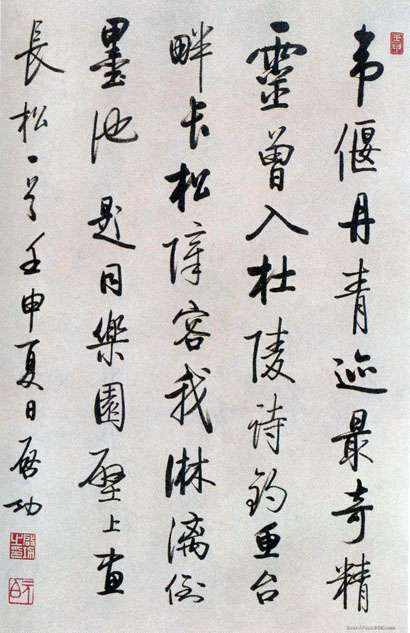 韦偃丹青迹最奇精
靈曾入杜陵诗钓鱼台
畔长松障容我淋漓倒
墨池 题同樂園壁上画
長松一首壬申夏日启功